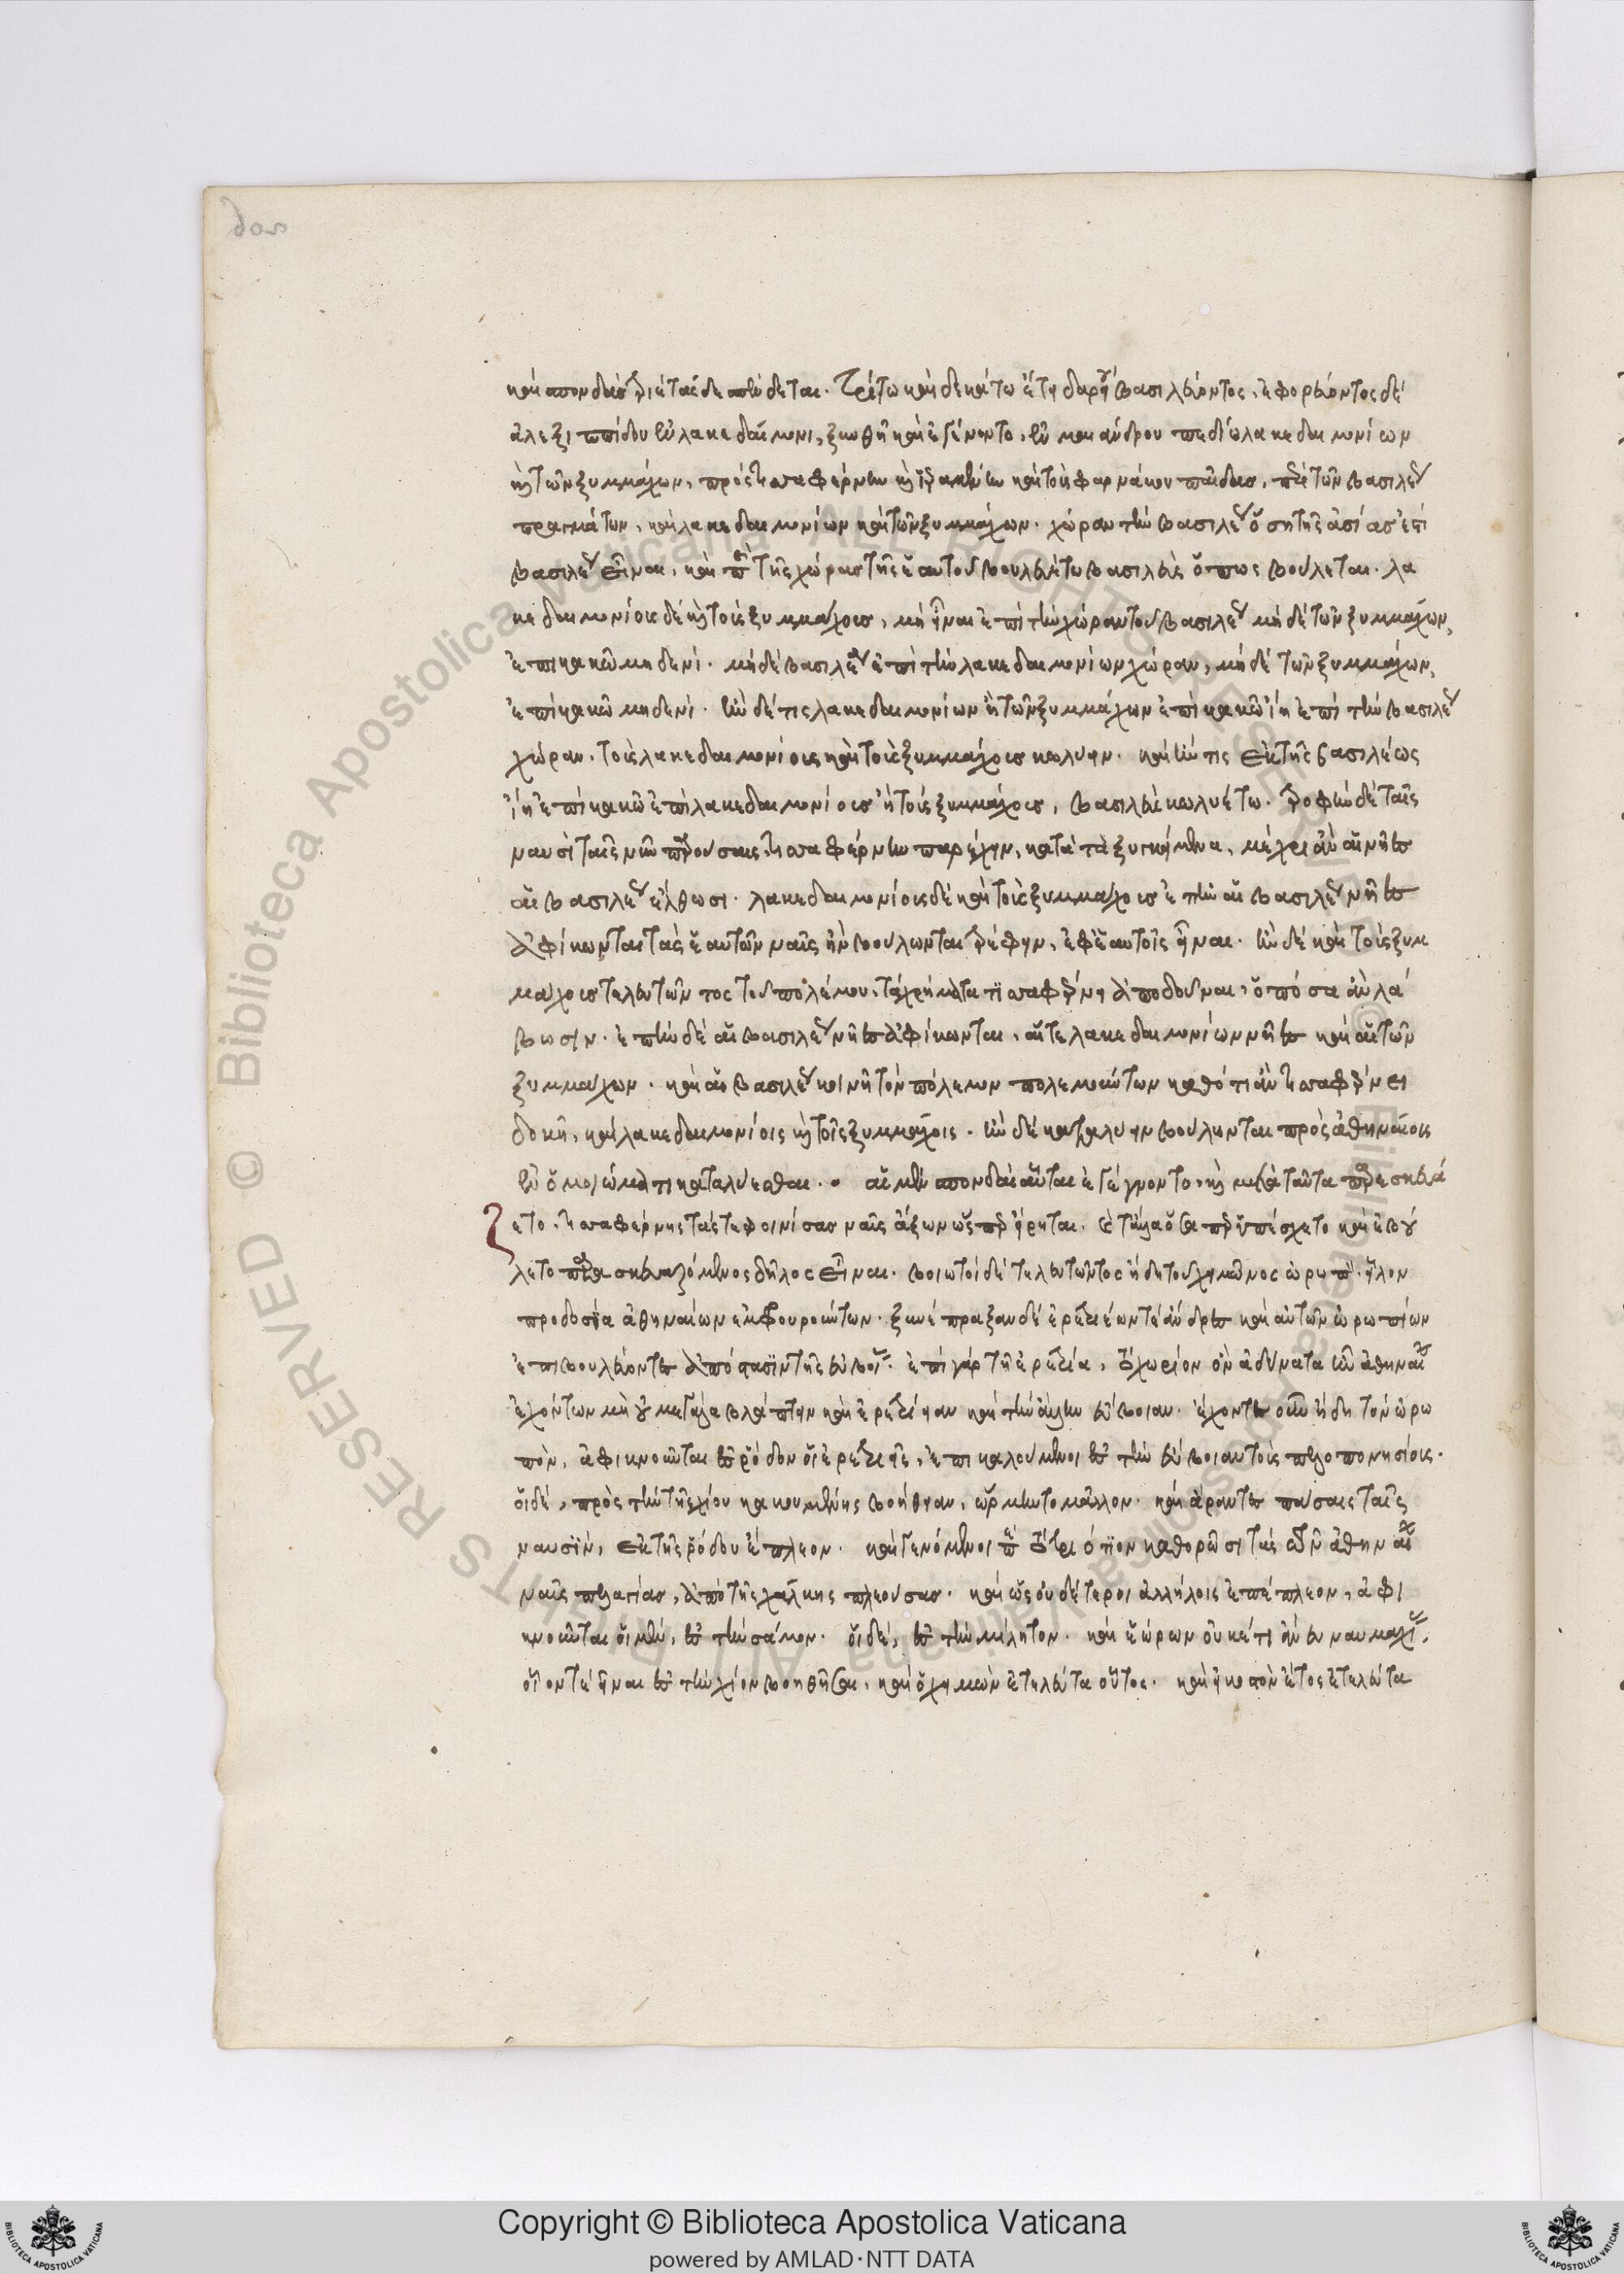 καὶ σπονδὰς τρίτας τάσδε σπένδεται. Τρίτω καὶ δεκάτω ἔτει δαρείου βασιλεύοντος, ἐφορεύοντος δὲ
ἀλεξιππίδου ἐν λακεδαίμονι, ξυνθῆκαι ἐγένοντο, ἐν μαιάνδρου πεδίω λακεδαιμονίων
καὶ τῶν ξυμμάχων, πρὸς τισσαφέρνην καὶ ἱεραμένην καὶ τοὺς φαρνάκου παῖδας, περὶ τῶν βασιλέως
πραγμάτων, καὶ λακεδαιμονίων καὶ τῶν ξυμμάχων. χώραν τὴν βασιλέως ὅση τῆς ἀσίας ἐστὶ
βασιλέως εἶναι, καὶ περὶ τῆς χώρας τῆς ἑαυτοῦ βουλευέτω βασιλεὺς ὅπως βούλεται. λα
κεδαιμονίους δὲ καὶ τοὺς ξυμμάχους, μὴ ἰέναι ἐπὶ τὴν χώραν τοῦ βασιλέως μηδὲ τῶν ξυμμάχων,
ἐπὶ κακῶ μηδενί. μηδὲ βασιλέως ἐπὶ τὴν λακεδαιμονίων χώραν, μηδὲ τῶν ξυμμάχων,
ἐπὶ κακῶ μηδενί. ἢν δέ τις λακεδαιμονίων ἢ τῶν ξυμμάχων ἐπὶ κακῶ ἴη ἐπὶ τὴν βασιλέως
χώραν, τοὺς λακεδαιμονίους καὶ τοὺς ξυμμάχους κωλύειν. καὶ ἤν τις ἐκ τῆς βασιλέως
ἴη ἐπὶ κακῶ ἐπὶ λακεδαιμονίους ἢ τοὺς ξυμμάχους, βασιλεὺς κωλυέτω. τροφὴν δὲ ταῖς
ναυσὶ ταῖς νῦν παρούσαις, τισσαφέρνην παρέχειν, κατὰ τὰ ξυγκείμενα, μέχρι ἂν αἱ νῆες
αἱ βασιλέως ἔλθωσι. λακεδαιμονίους δὲ καὶ τοὺς ξυμμάχους ἐπὴν αἱ βασιλέως νῆες
ἀφίκωνται τὰς ἑαυτῶν ναῦς ἢν βούλωνται τρέφειν, ἐφ' ἑαυτοῖς εἶναι. ἢν δὲ καὶ τοὺς ξυμ
μάχους τελευτῶντος τοῦ πολέμου, τὰ χρήματα τισσαφέρνει ἀποδοῦναι, ὁπόσα ἂν λά
βωσιν. ἐπὴν δὲ αἱ βασιλέως νῆες ἀφίκωνται, αἵ τε λακεδαιμονίων νῆες καὶ αἱ τῶν
ξυμμάχων. καὶ αἱ βασιλέως κοινῆ τὸν πόλεμον πολεμούντων καθότι ἂν τισσαφέρνει
δοκῆ, καὶ λακεδαιμονίοις καὶ τοῖς ξυμμάχοις. ἢν δὲ καταλύειν βούλωνται πρὸς ἀθηναίους
ἐν ὁμοίωματι καταλύεσθαι. αἱ μὲν σπονδαὶ αὗται ἐγένοντο, καὶ μετὰ ταῦτα παρεσκευά
ετο, τισσαφέρνης τάς τε φοινίσσας ναῦς ἄξων ὥσπερ εἴρηται. καὶ τἆλλα ὅσαπερ ὑπέσχετο καὶ ἐβού
λετο παρασκευαζόμενος δῆλος εἶναι. βοιωτοὶ δὲ τελευτῶντος ἤδη τοῦ χειμῶνος ὠρωπὸν εἷλον
προδοσία ἀθηναίων ἐμφρουρούντων. ξυνέπραξαν δὲ ἐρετριέων τὲ ἄνδρες καὶ αὐτῶν ὠρωπίων
ἐπιβουλεύοντες ἀπόστασιν τῆς εὐβοίας. ἐπὶ γὰρ τῆ ἐρετρία, τὸ χωρίον ὂν ἀδύνατα ἦν ἀθηναίων
ἐχόντων μὴ οὐ μεγάλα βλάπτειν καὶ ἐρετρίειαν καὶ τὴν ἄλλην εὔβοιαν. ἔχοντες οὖν ἤδη τὸν ὠρω
πὸν, ἀφικνοῦνται ἐς ῥόδον οἱ ἐρετριεῖς, ἐπικαλούμενοι ἐς τὴν εὔβοιαν τοὺς πελοποννησίους.
οἱ δὲ, πρὸς τὴν τῆς χίου κακουμένης βοήθειαν, ὥρμηντο μᾶλλον. καὶ ἄραντες πάσαις ταῖς
ναυσὶν, ἐκ τῆς ῥόδου ἔπλεον. καὶ γενόμενοι περὶ τριόπιον καθορῶσι τὰς τῶν ἀθηναίων
ναῦς πελαγίας, ἀπὸ τῆς χάλκης πλεούσας. καὶ ὡς οὐδέτεροι ἀλλήλοις ἐπέπλεον, ἀφι
κνοῦνται οἱ μὲν, ἐς τὴν σάμον. οἱ δὲ, ἐς τὴν μίλητον. καὶ ἑώρων οὐκέτι ἄνευ ναυμαχίας,
οἷόν τε εἶναι ἐς τὴν χίον βοηθῆσαι, καὶ ὁ χειμὼν ἐτελεύτα οὗτος. καὶ εἰκοστὸν ἔτος ἐτελεύτα
Copyright © Biblioteca Apostolica Vaticana
powered by AMLAD·NTT DATA